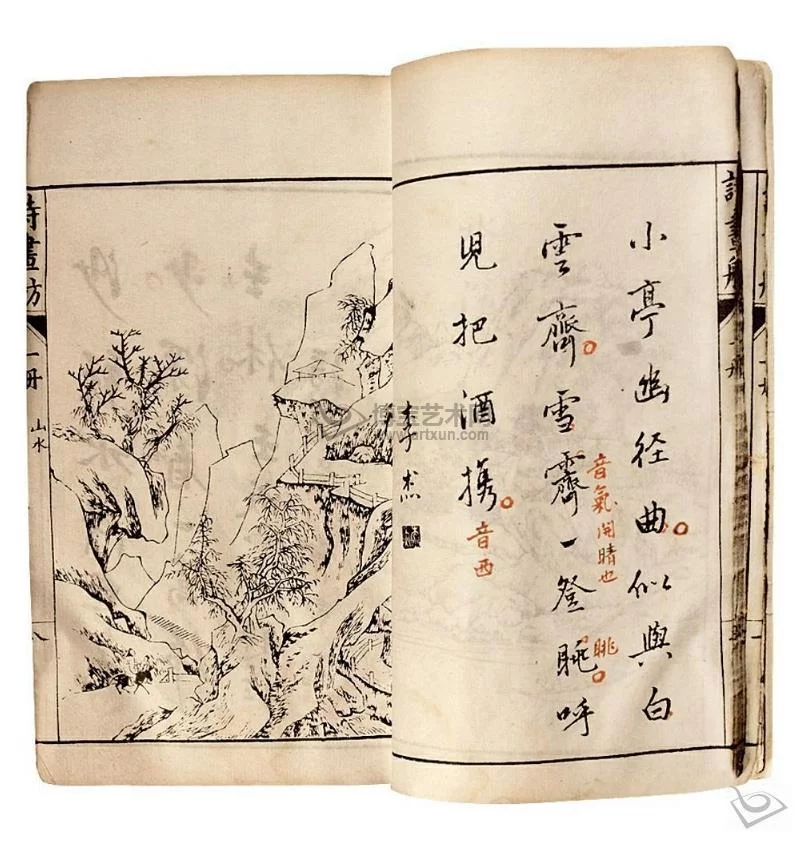 詩畫舫
小亭幽径曲似與白
雲齊雪霽一登眺呼
児把酒携
音氣開晴也
眺
音西
李杰
詩畫舫 一冊 山水
八
博宝艺术网
www.artxun.com